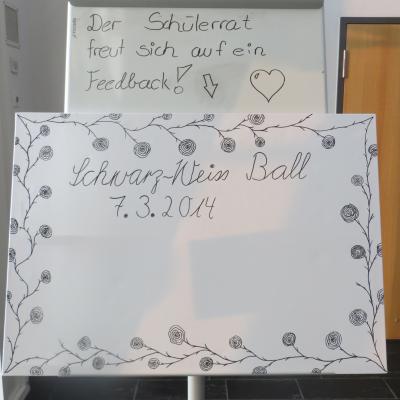 Der Schülerrat
freut sich auf ein
Feedback!
Schwarz-Weiss Ball
7.3.2014